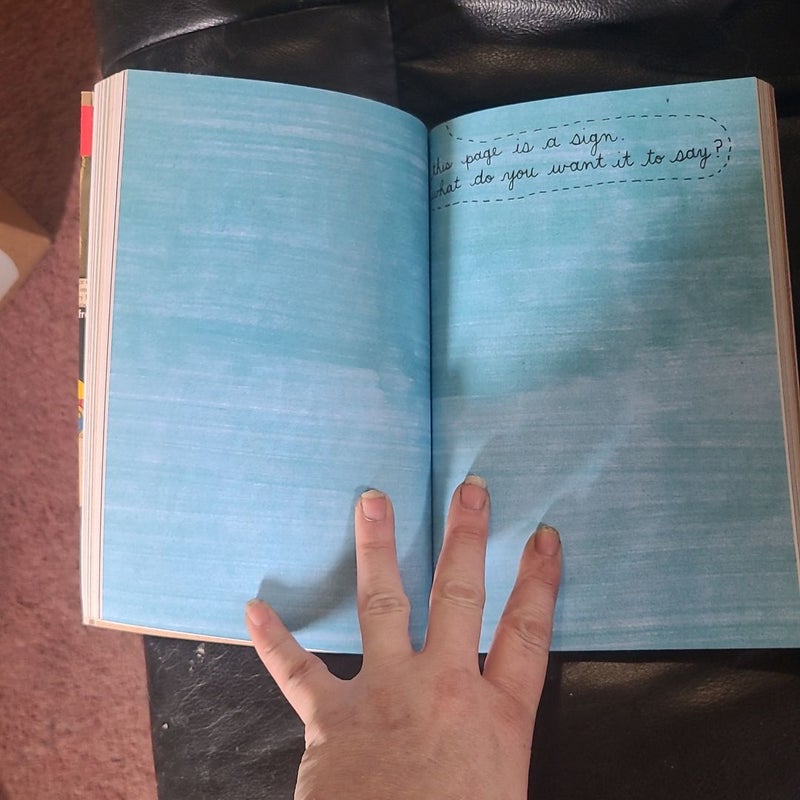 this page is a sign.
what do you want it to say?